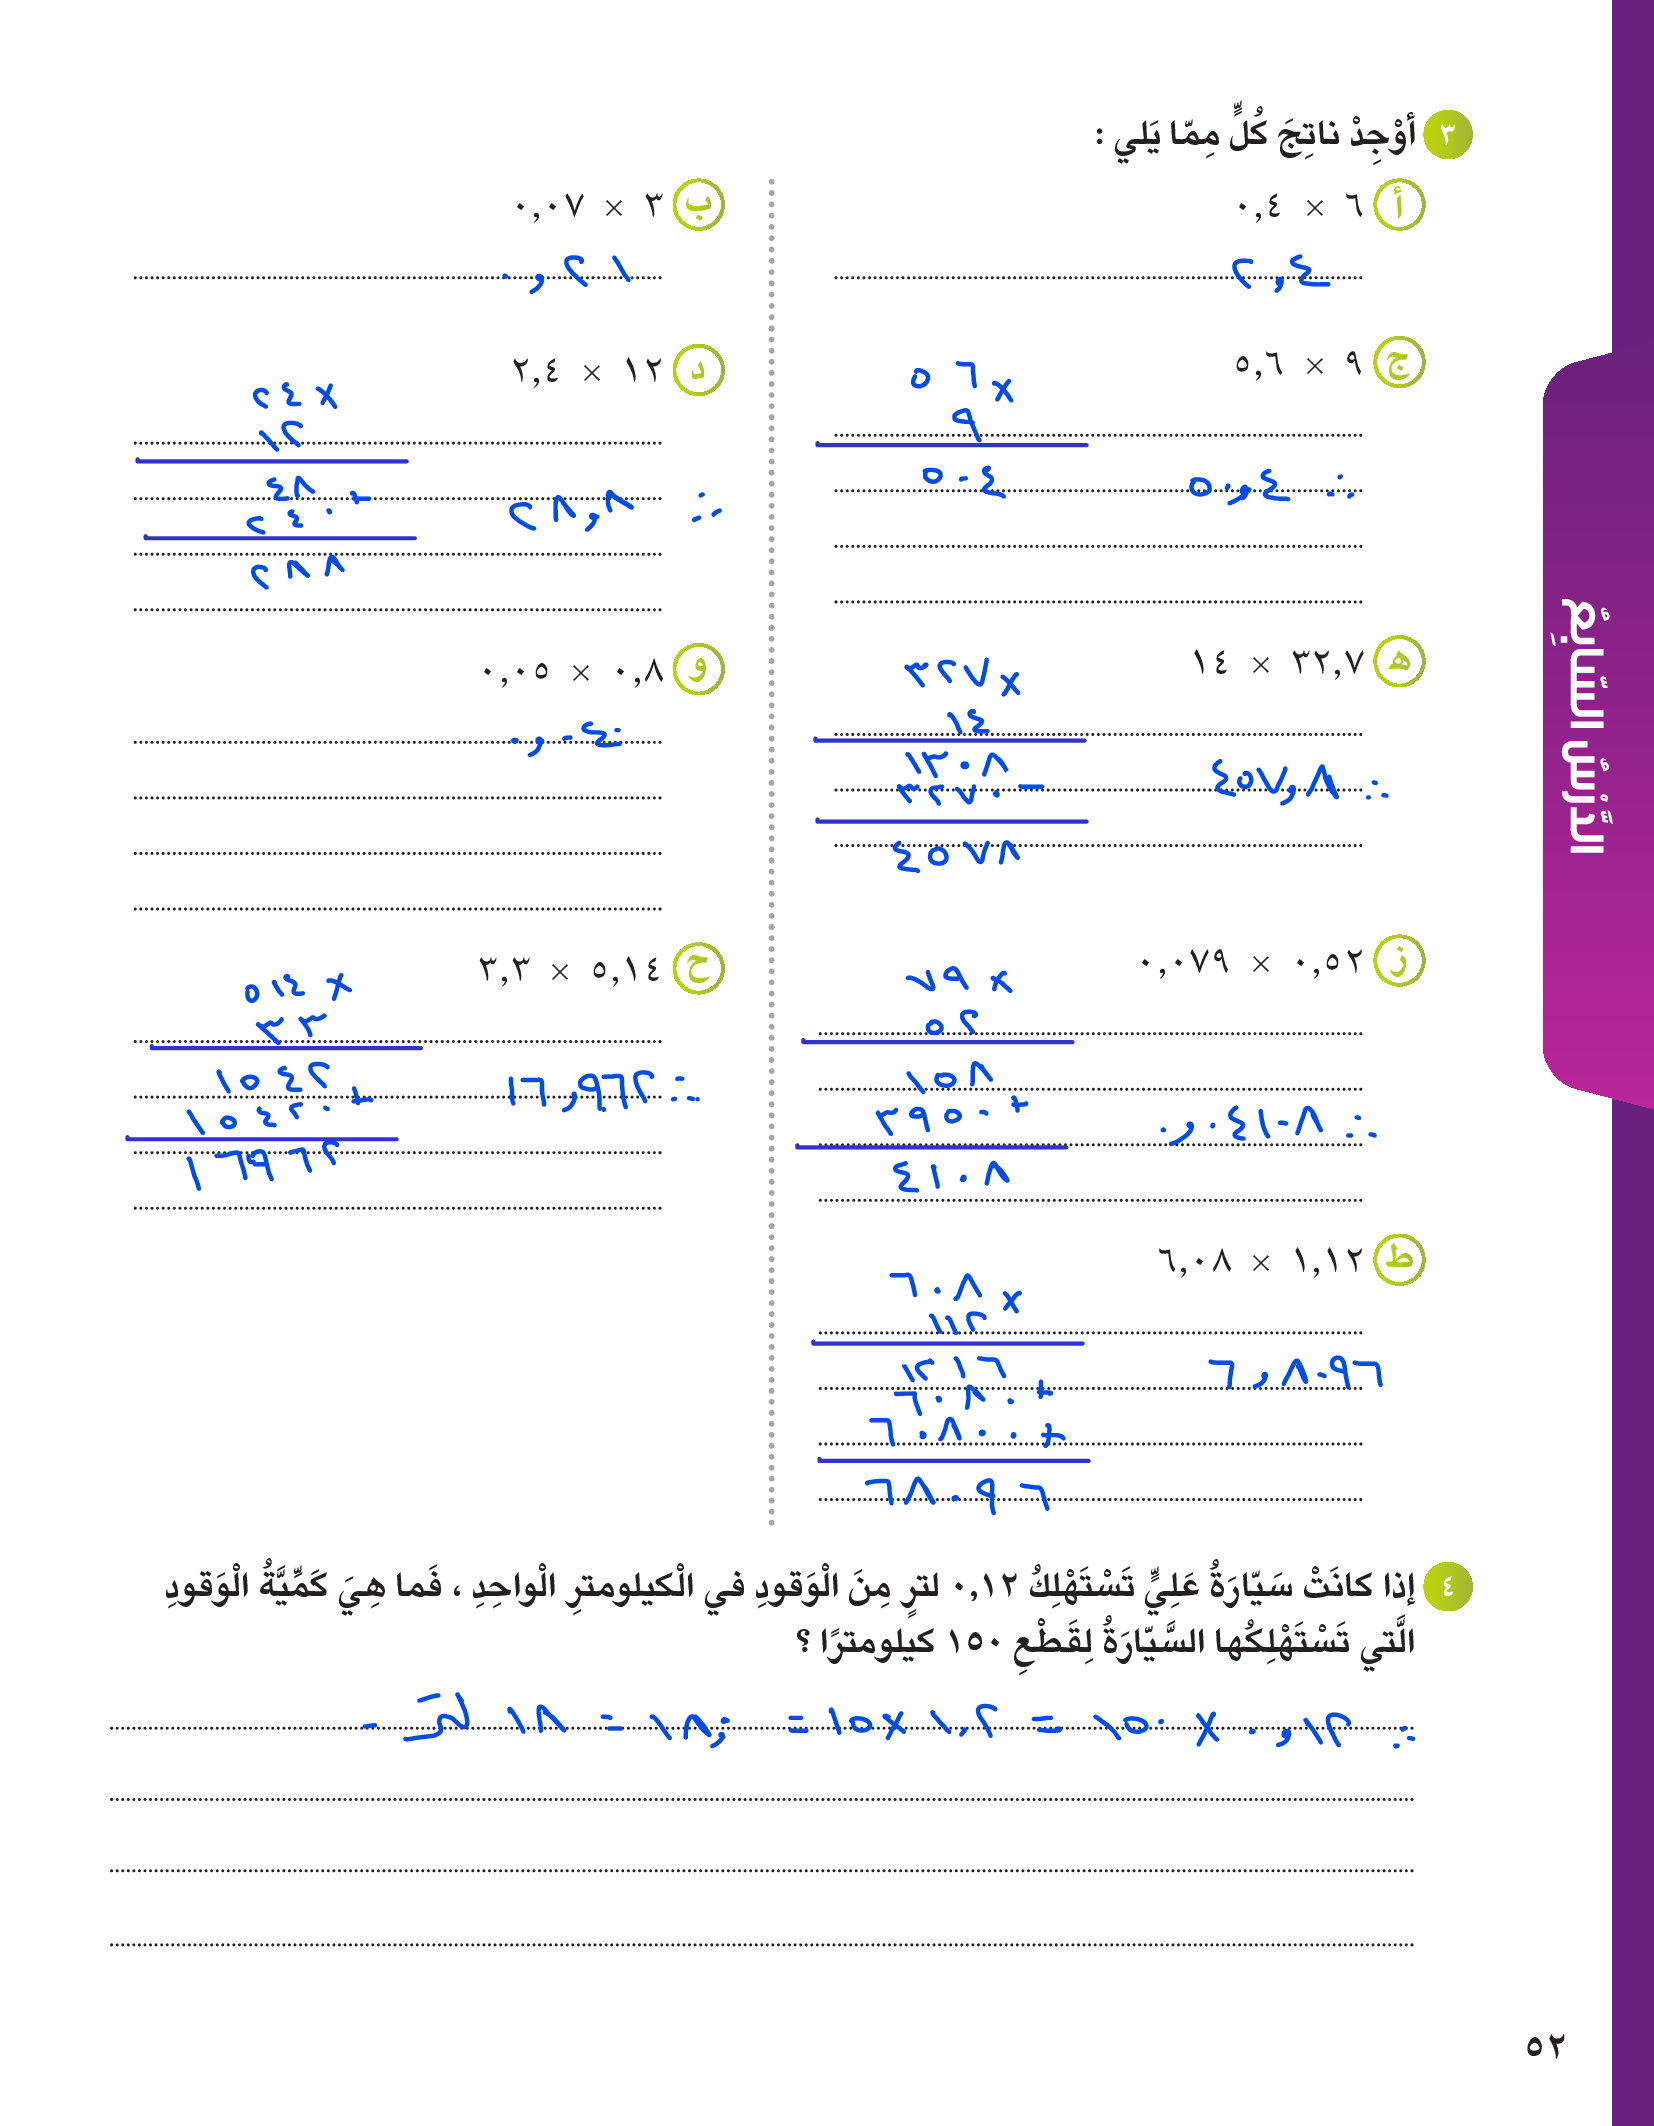 ٣ أوْجِدْ ناتِجَ كُلٍّ مِمّا يَلي :
أ ٦ × ٠,٤
٢,٤
ب ٣ × ٠,٠٧
٠,٢١
ج ٩ × ٥,٦
٥٦ ×
٩
٥٠٤
∴ ٥٠,٤
د ١٢ × ٢,٤
٢٤ ×
١٢
٤٨
٢٤٠ +
٢٨٨
∴ ٢٨,٨
هـ ٣٢,٧ × ١٤
٣٢٧ ×
١٤
١٣٠٨
٣٢٧٠ −
٤٥٧٨
∴ ٤٥٧,٨
و ٠,٨ × ٠,٠٥
٠,٠٤٠
ز ٠,٥٢ × ٠,٠٧٩
٧٩ ×
٥٢
١٥٨
٣٩٥٠ +
٤١٠٨
∴ ٠,٠٤١٠٨
ح ٥,١٤ × ٣,٣
٥١٤ ×
٣٣
١٥٤٢
١٥٤٢٠ +
١٦٩٦٢
∴ ١٦,٩٦٢
ط ١,١٢ × ٦,٠٨
٦٠٨ ×
١١٢
١٢١٦
٦٠٨٠ +
٦٠٨٠٠ +
٦٨٠٩٦
٦,٨٠٩٦
٤ إذا كانَتْ سَيّارَةُ عَلِيٍّ تَسْتَهْلِكُ ٠,١٢ لترٍ مِنَ الْوَقودِ في الْكيلومترِ الْواحِدِ ، فَما هِيَ كَمِّيَّةُ الْوَقودِ
الَّتي تَسْتَهْلِكُها السَّيّارَةُ لِقَطْعِ ١٥٠ كيلومترًا ؟
∴ ٠,١٢ × ١٥٠ = ١.٢ × ١٥ = ١٨,٠ = ١٨ لتر -
الدَّرْسُ السّابِعُ
٥٢